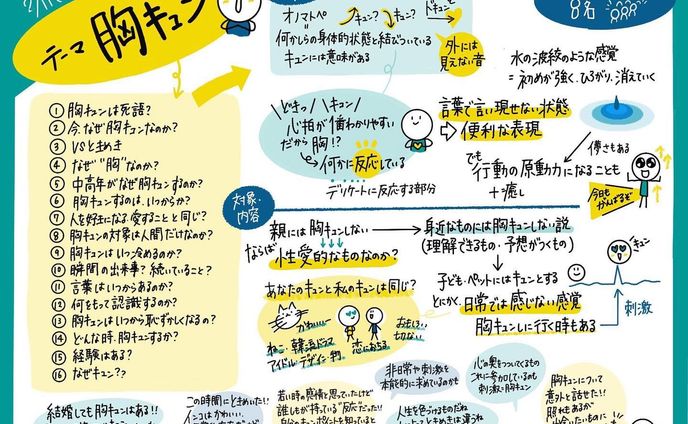 テーマ 胸キュン
① 胸キュンは死語?
② 今、なぜ胸キュンなのか?
③ VSときめき
④ なぜ"胸"なのか?
⑤ 中高年がなぜ胸キュンするのか?
⑥ 胸キュンするのは、いつからか?
⑦ 人を好きになる・愛することと同じ?
⑧ 胸キュンの対象は人間だけなのか?
⑨ 胸キュンはいつ冷めるのか?
⑩ 瞬間の出来事?続いていること?
⑪ 言葉はいつからあるのか?
⑫ 何をもって認識するのか?
⑬ 胸キュンはいつから恥ずかしくなるの?
⑭ どんな時、胸キュンするか?
⑮ 経験はある?
⑯ なぜキュン??
オノマトペ
キュン?
キュン?
何かしらの身体的状態と結びついている
キュンには意味がある
外には
見えない音
8名
水の波紋のような感覚
=初めが強く、ひろがり、消えていく
ドキッ
キュン
心拍が
わかりやすい
だから胸!?
↳何かに反応している
デリケートに反応する部分
言葉で言い現せない状態
⇨便利な表現
儚さもある
でも
行動の原動力になることも
+癒し
今日も
がんばるぞ
対象・
内容
親には胸キュンしない
ならば
性愛的なものなのか?
→身近なものには胸キュンしない説
(理解できるもの・予想がつくもの)
あなたのキュンと私のキュンは同じ?
かわいー
ねこ・韓流ドラマ
アイドル・デザイン・物
恋におちる
おもしろい
切ない
子ども・ペットにはキュンとする
とにかく、日常では感じない感覚
胸キュンしに行く時もある
キュン
刺激
結婚しても胸キュンはある!!
この時間にときめいた!!
インコはかわいい、
若い時の感情を思っていたけど
誰しもが持っている"反応"だった!!
非日常や刺激を
本能的に求めているのかも
人生を色づけるものだね
心の奥をついてくるもの
これに参加しているのも
刺激=胸キュン
胸キュンについて
意外と話せた!!
照れもあるが